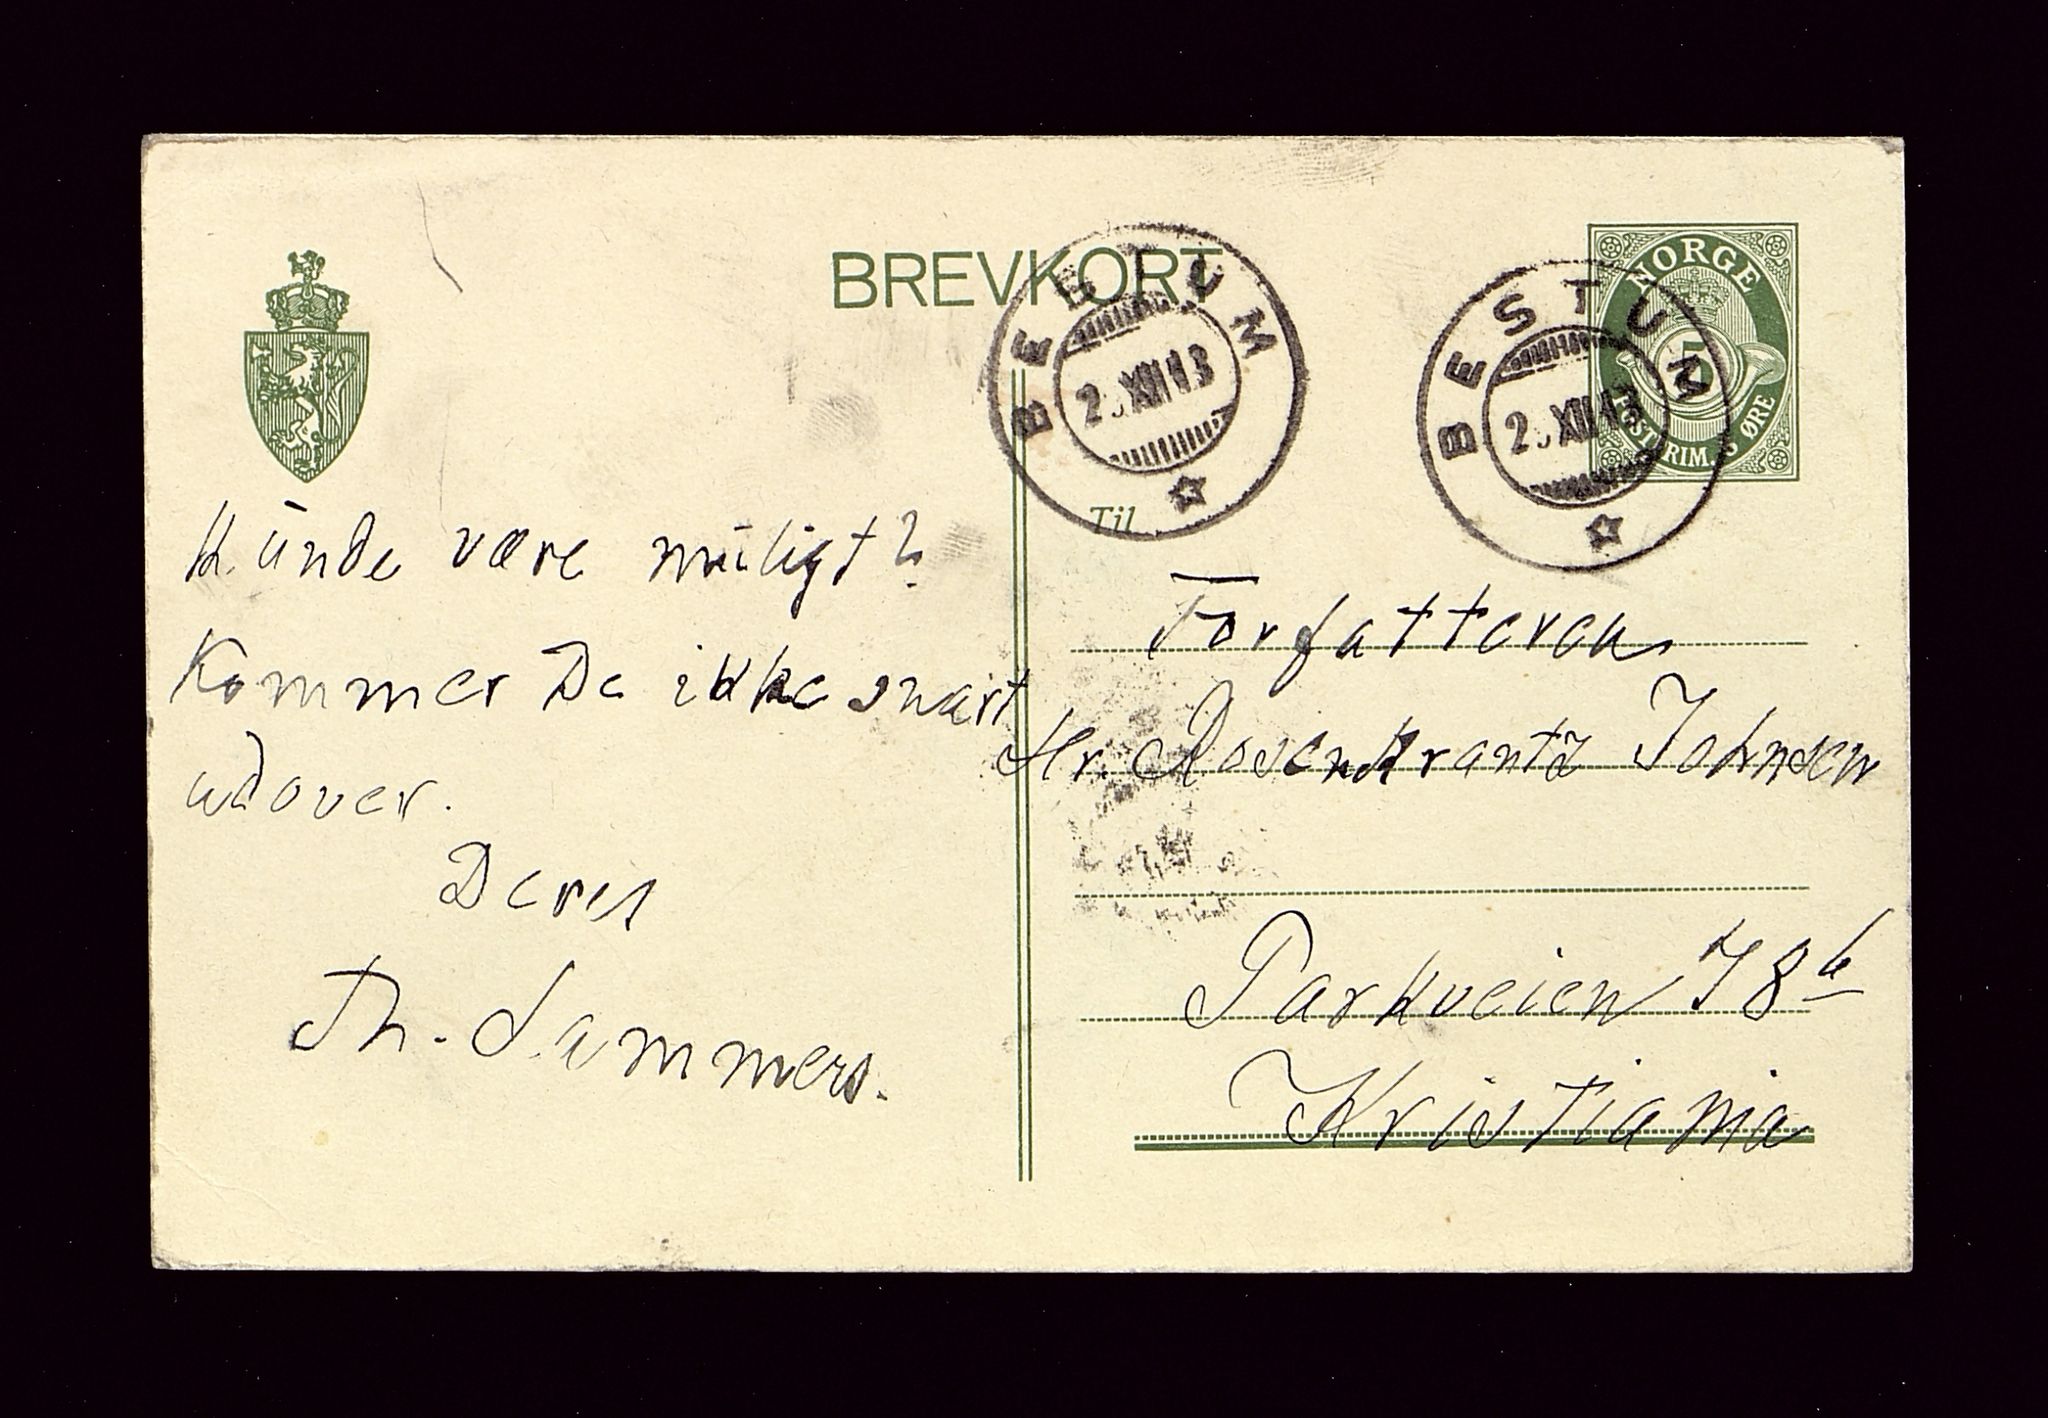 BREVKORT
NORGE
5
POSTFRIM. 5 ØRE
BESTUM
2 XII 13
BESTUM
2 XII 13
kunde være muligt?
Kommer De ikke snart
udover.
Deres
Th. Lammers.
Til
Forfatteren
Hr. Rosenkrantz Johnsen
Parkveien 78b
Kristiania